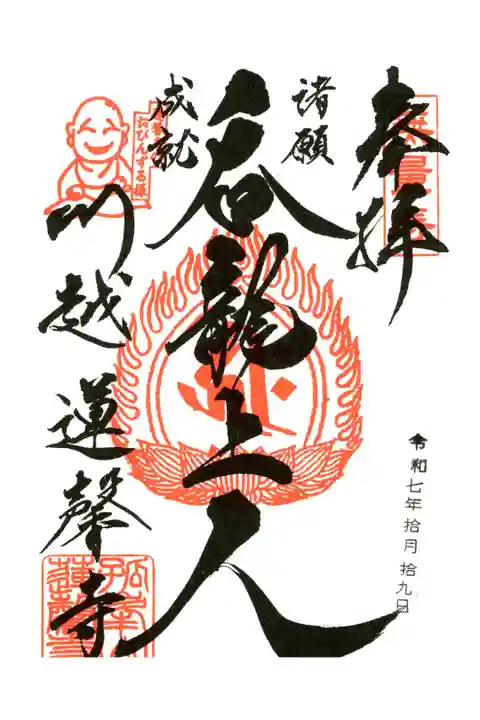 奉拝
諸願
成就
呑龍上人
川越蓮馨寺
令和七年拾月拾九日
おびんずる様